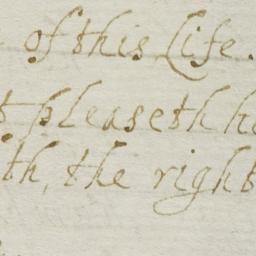 of this Life.
t pleaseth h
th, the right